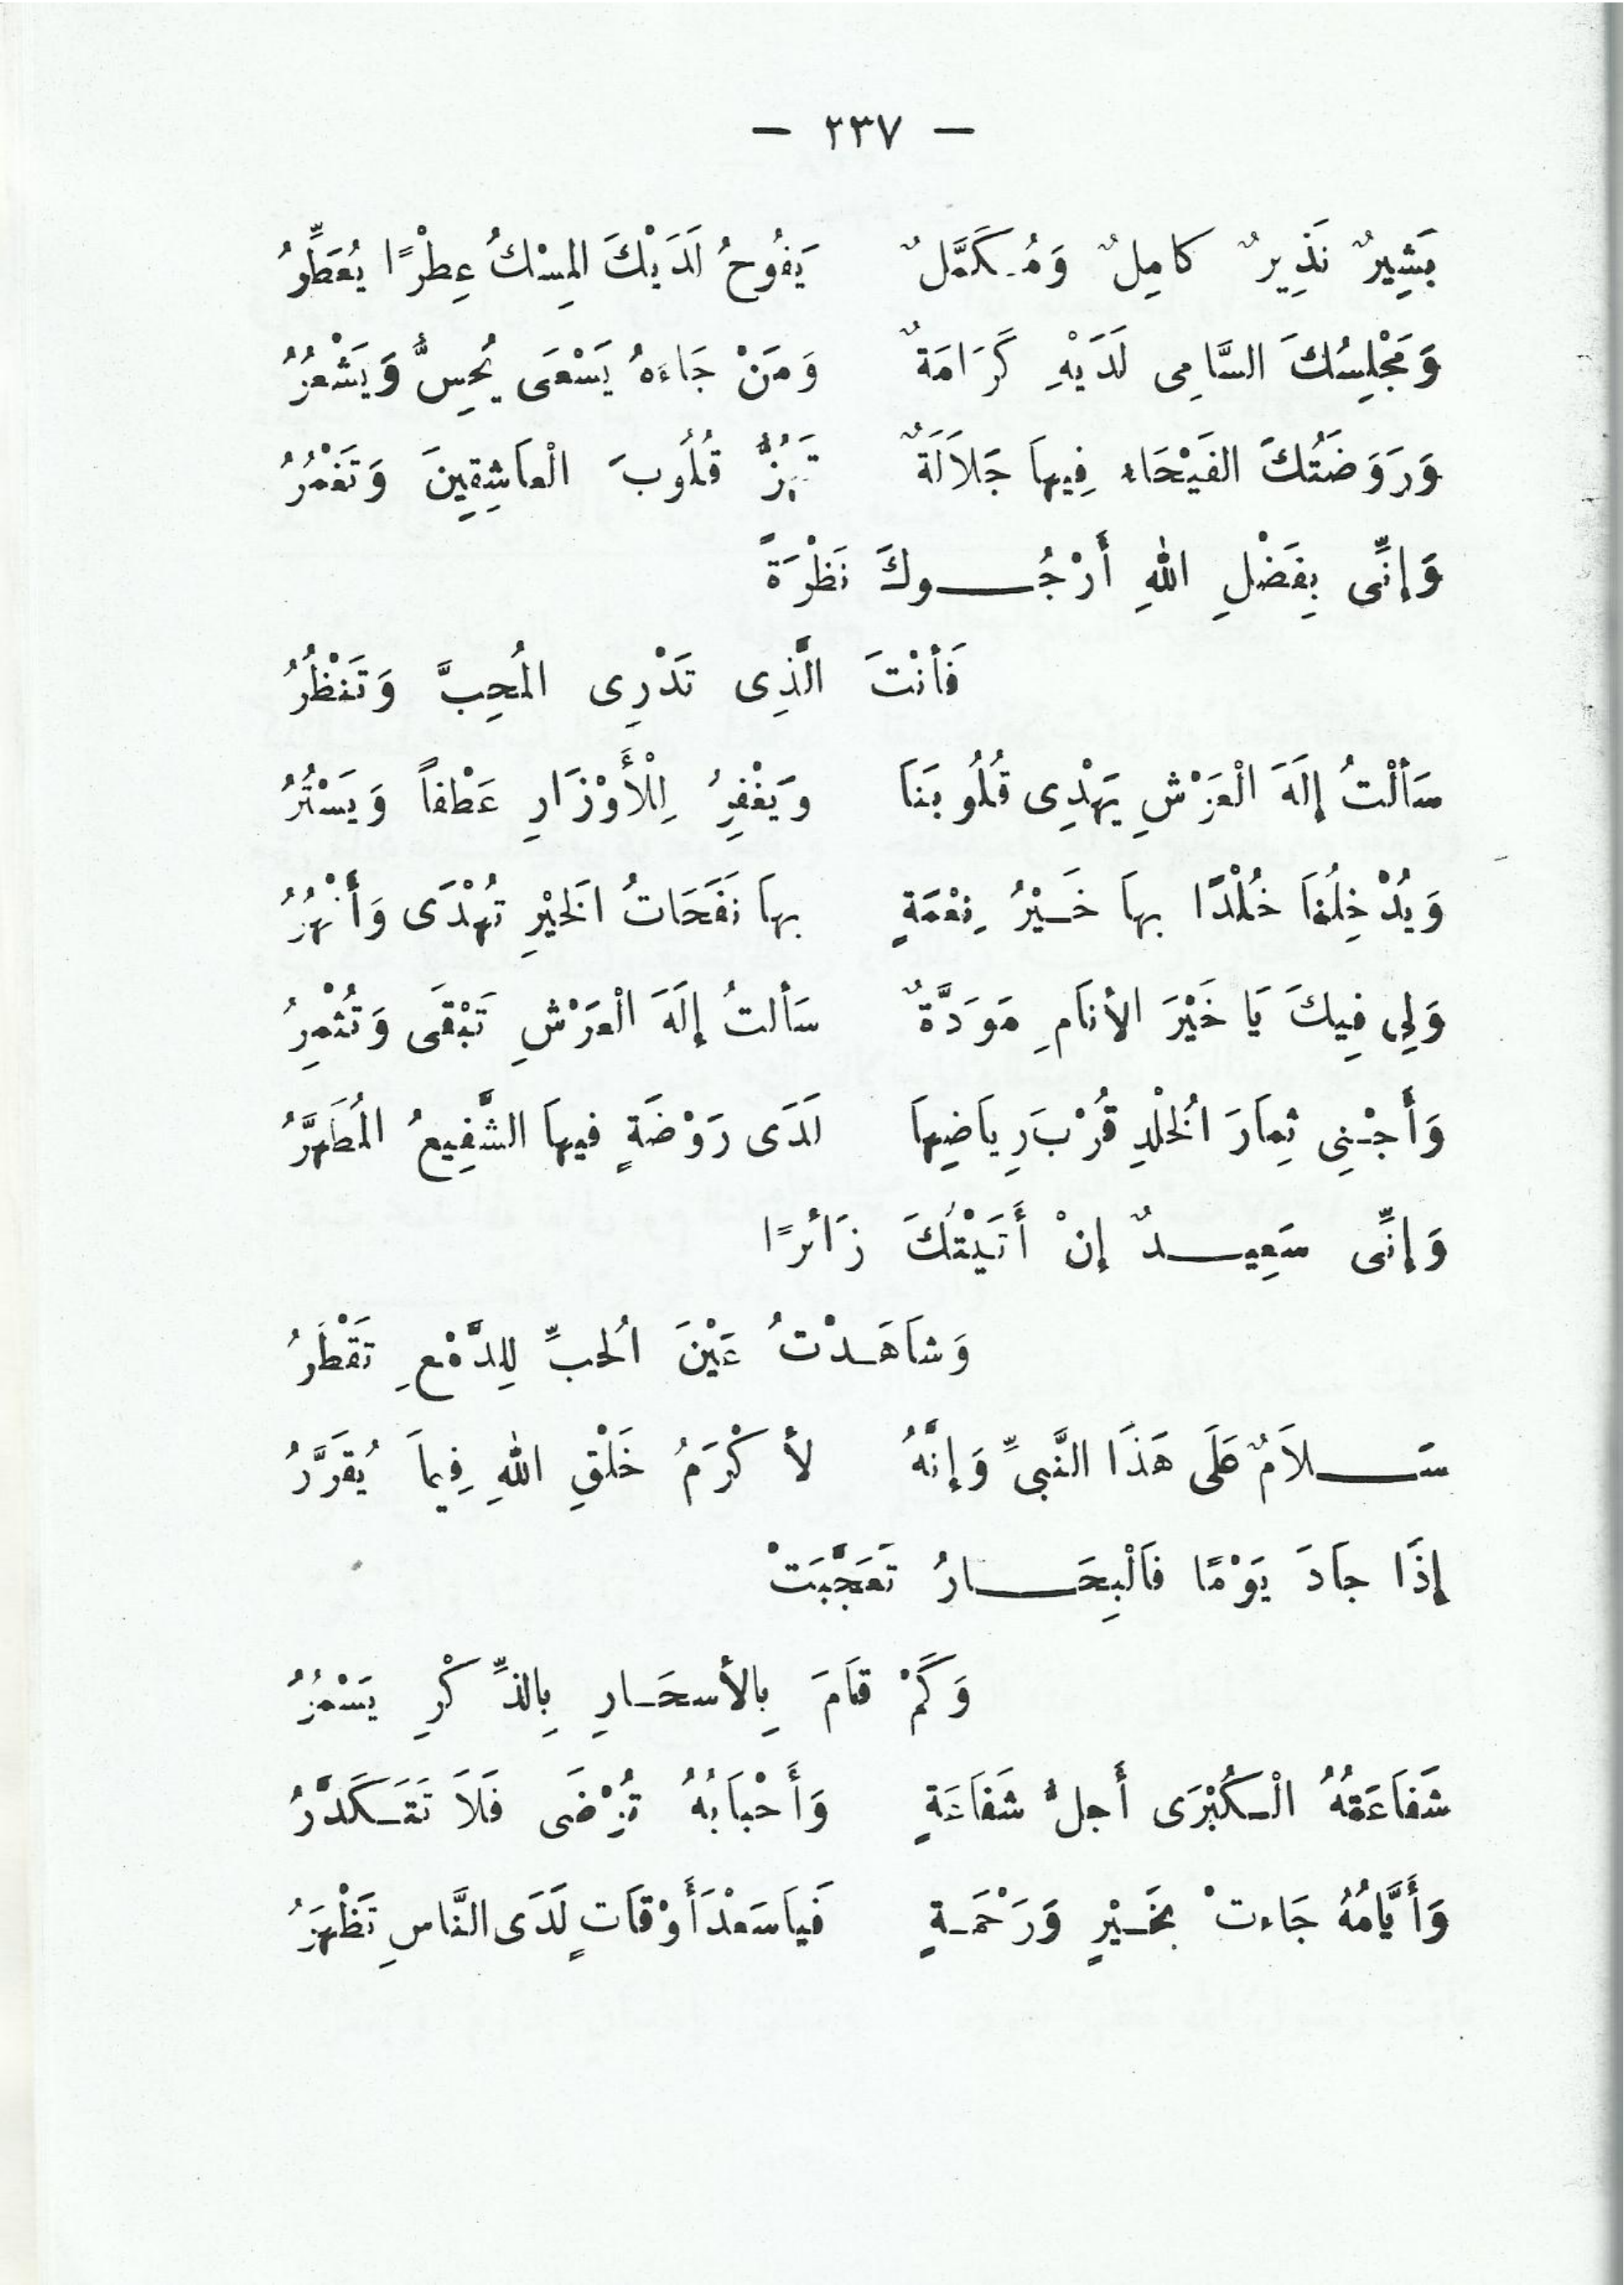 — ٢٣٧ —
بَشِيرٌ نَذِيرٌ كامِلٌ وَمُكَمَّلٌ يَفُوحُ لَدَيْكَ المِسْكُ عِطْرًا يُعَطِّرُ
وَمَجْلِسُكَ السَّامِى لَدَيْهِ كَرَامَةٌ وَمَنْ جَاءَهُ يَسْعَى يُحِسُّ وَيَشْعُرُ
وَرَوَضَتُكَ الفَيْحَاءِ فِيهاَ جَلاَلَةٌ تَهُزُّ قُلُوبَ الْعاَشِقِينَ وَتَغْمُرُ
وَإِنِّى بِفَضْلِ اللهِ أَرْجُــوكَ نَظْرَةً
فَأنْتَ الَّذِى تَدْرِى المُحِبَّ وَتَنْظُرُ
سَألْتُ إِلَهَ الْعَرْشِ يَهْدِى قُلُوبَناَ وَيَغْفِرُ لِلْأَوْزَارِ عَطْفاً وَيَسْتُرُ
وَيُدْخِلُناَ خُلْدًا بهاَ خَـيْرُ نِعْمَةٍ بهاَ نَفَحَاتُ الَخيْرِ تُهْدَى وَأَنْهُرُ
وَلِى فِيكَ يَا خَيْرَ الأنَامِ مَوَدَّةٌ سَألتُ إِلَهَ الْعَرْشِ تَبْقَى وَتُثْمِرُ
وَأَجْـنِى ثِمارَ الُخلْدِ قُرْبَ رِياَضِهاَ لَدَى رَوْضَةٍ فيهاَ الشَّفِيعُ المُطَهَّرُ
وَإِنِّى سَعِيــدٌ إِنْ أَتَيْتُكَ زَائرًا
وَشاَهَـدْتُ عَيْنَ الُحبِّ لِلدَّمْعِ تَقْطَرُ
سَــلاَمٌ عَلَى هَذَا النَّبىِّ وَإِنَّهُ لأَكْرَمُ خَلْقِ اللهِ فِيماَ يُقَرَّرُ
إِذَا جاَدَ يَوْمًا فاَلْبِحَــارُ تَعَجَّبَتْ
وَكَمْ قاَمَ بِالأسحَـارِ بِالذِّكْرِ يَسْمُرُ
شَفاَعَتُهُ الْـكُبْرَى أَجلُّ شَفَاعَةٍ وَأَحْباَبُهُ تُرْضَى فَلاَ تَتَـكَدَّرُ
وَأَيَّامُهُ جَاءتْ بخَـيْرٍ وَرَحْمَـةٍ فَياَسَعْدَ أَوْقاَتٍ لَدَى النَّاسِ تَظْهَرُ